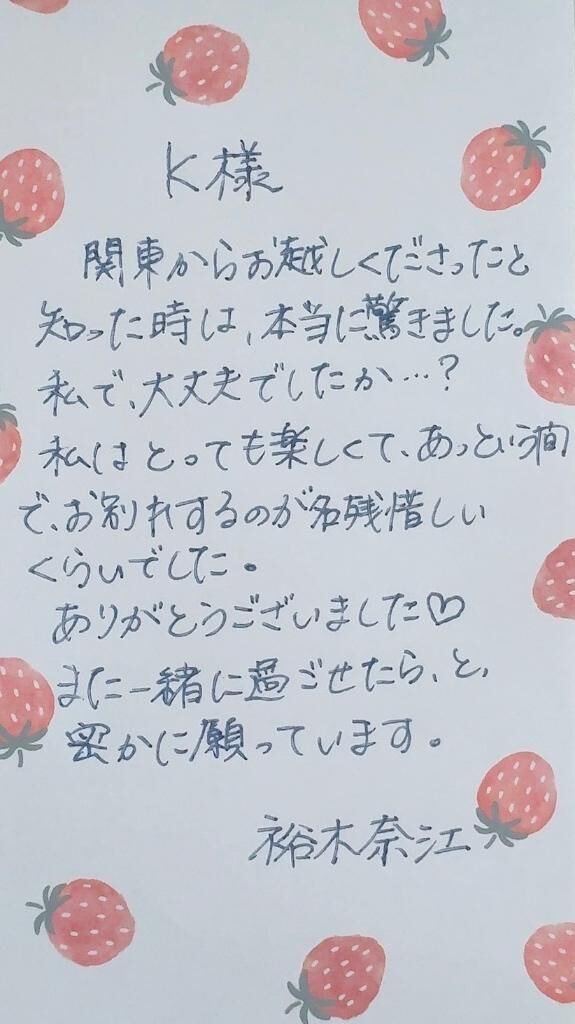 K様
関東からお越しくださったと
知った時は、本当に驚きました。
私で、大丈夫でしたか…?
私はとっても楽しくて、あっという間
で、お別れするのが名残惜しい
くらいでした。
ありがとうございました♡
また一緒に過ごせたら、と、
密かに願っています。
裕木奈江